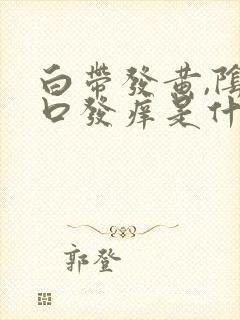 白帶發黃,陰
口發痒是什
郭登